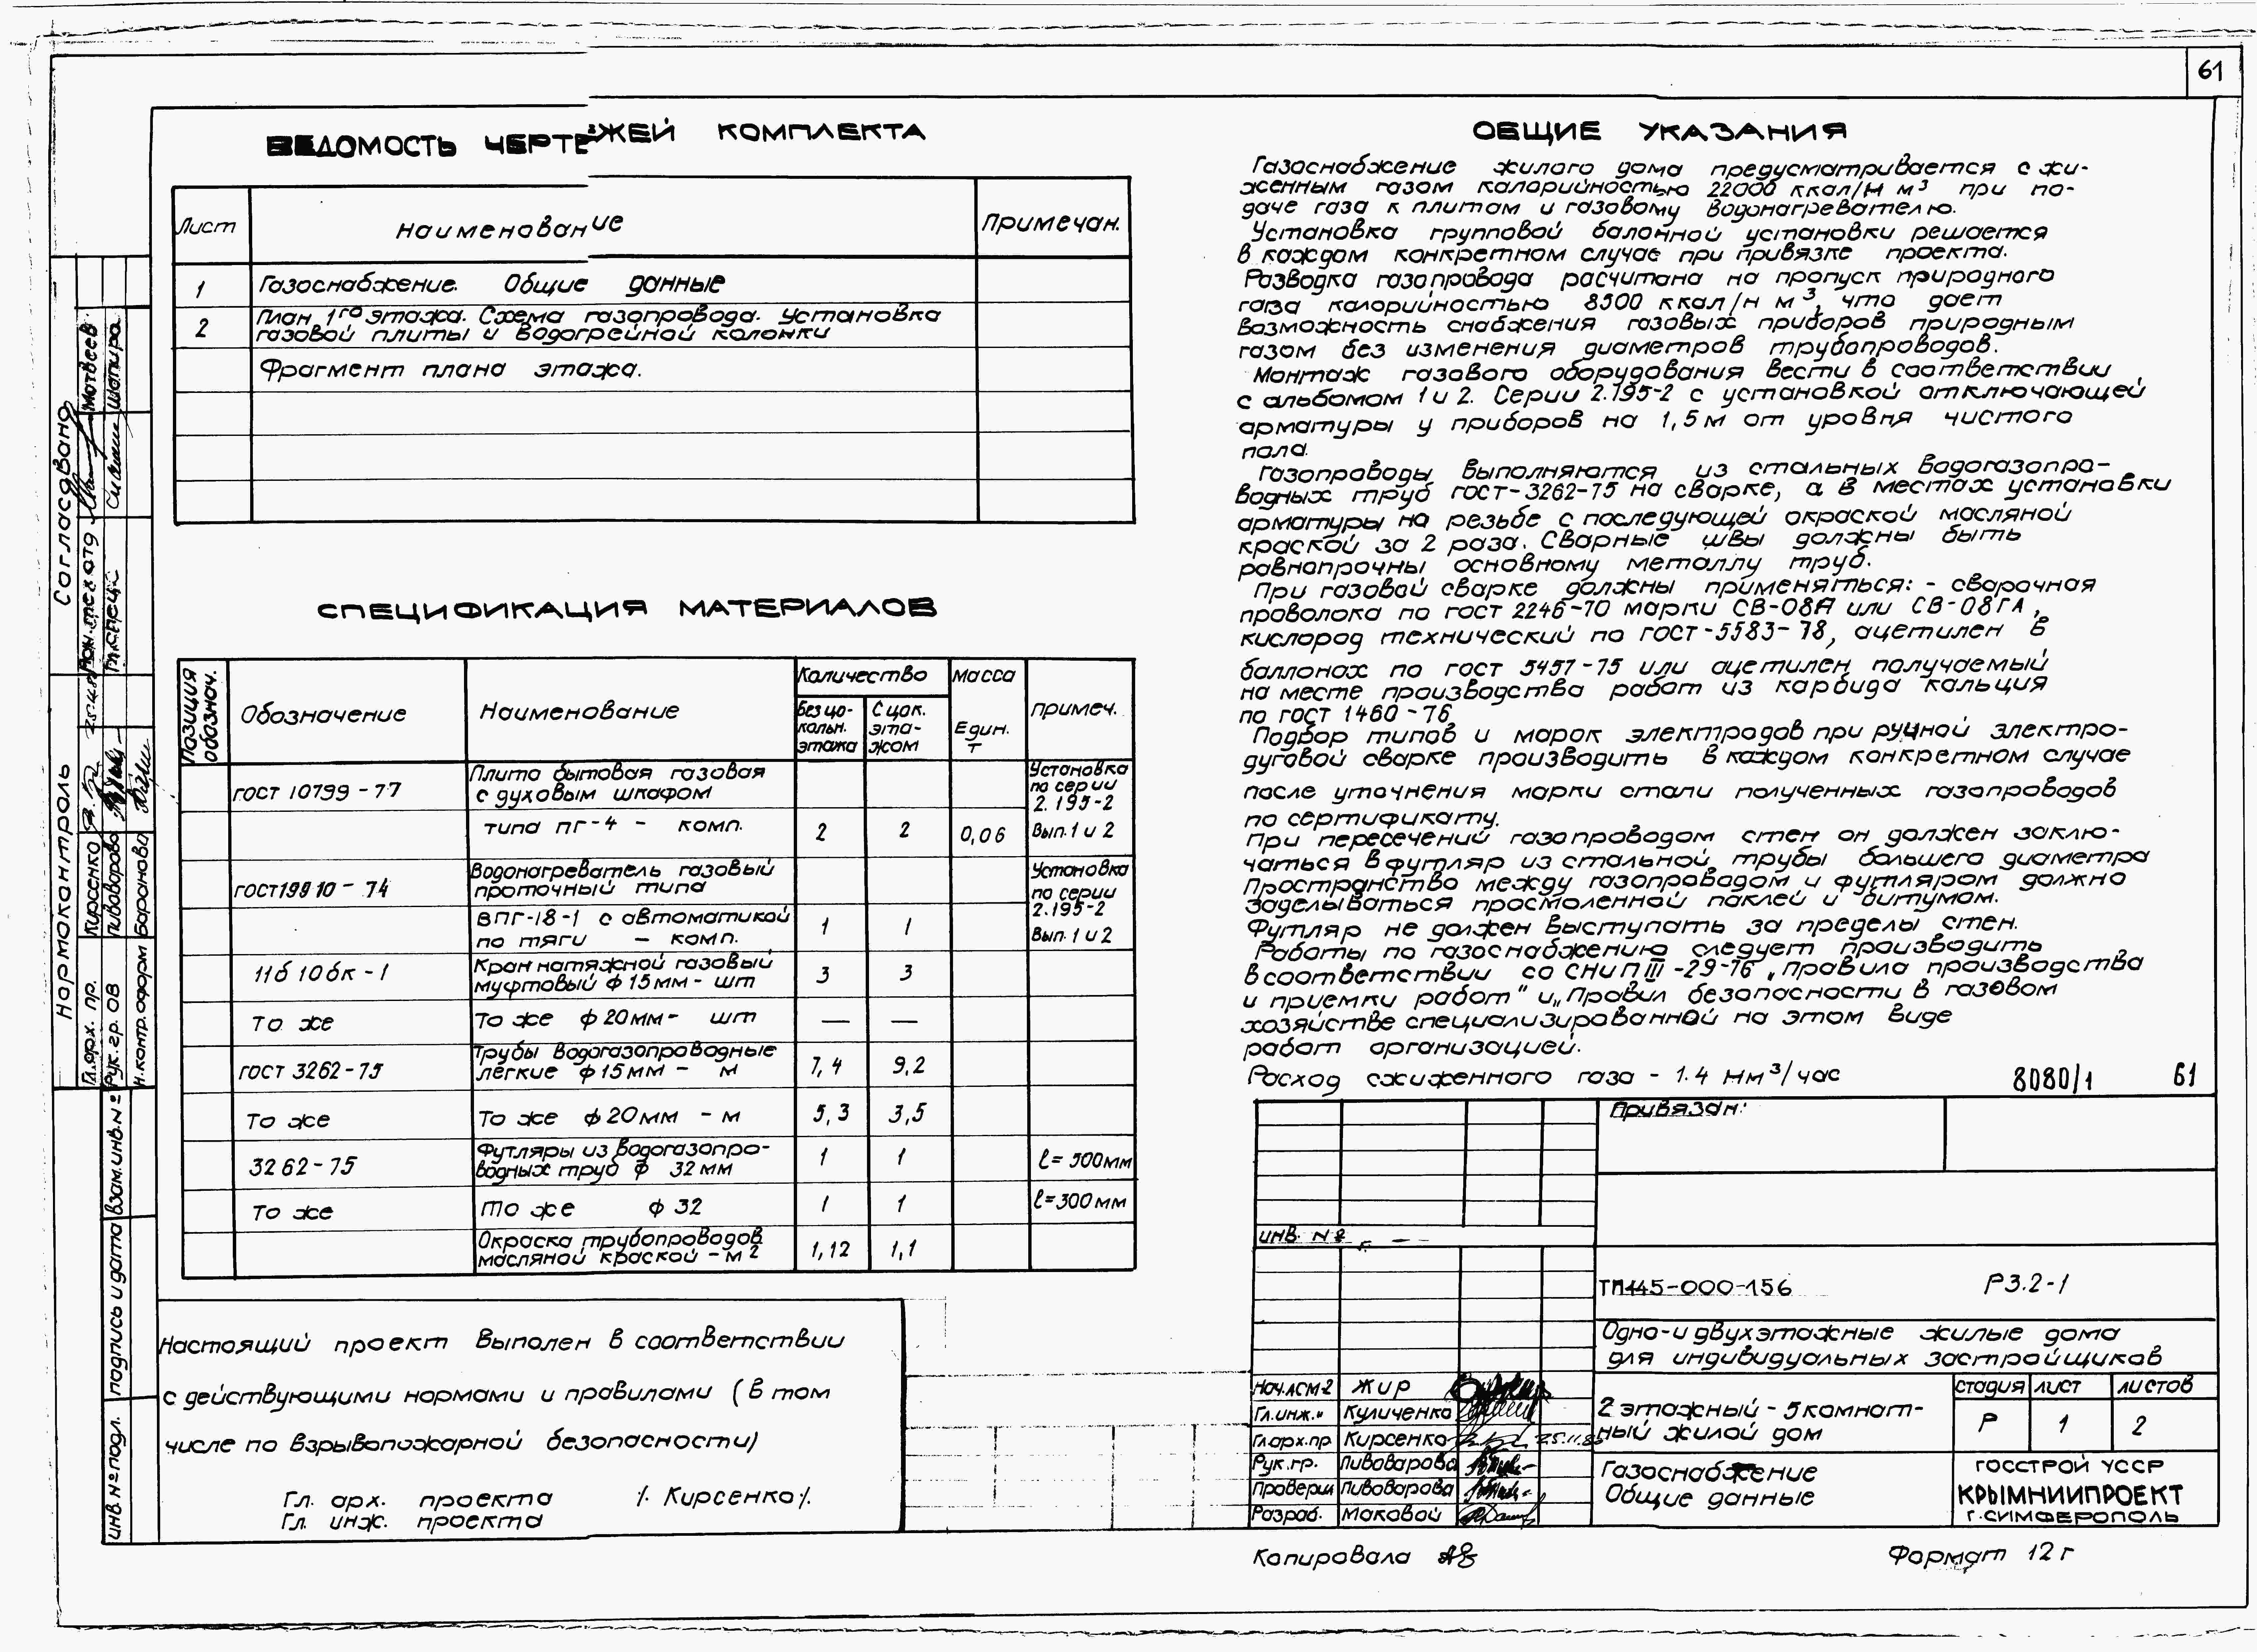 61
ВЕДОМОСТЬ ЧЕРТЕЖЕЙ КОМПЛЕКТА
Лист Наименование Примечан.
1 Газоснабжение. Общие данные
2 План 1го этажа. Схема газопровода. Установка
газовой плиты и водогрейной колонки
Фрагмент плана этажа.
СПЕЦИФИКАЦИЯ МАТЕРИАЛОВ
Позиция обознач.
Обозначение
Наименование
Количество
Без цо-
кольн.
этажа
С цок.
эта-
жом
Масса
Един.
т
Примеч.
ГОСТ 10799-77
Плита бытовая газовая
с духовым шкафом
типа ПГ-4 - комп.
2 2 0,06
Установка
по серии
2.195-2
Вып. 1 и 2
ГОСТ 19910-74
Водонагреватель газовый
проточный типа
ВПГ-18-1 с автоматикой
по тяги - комп.
1 1
Установка
по серии
2.195-2
Вып. 1 и 2
11б 10бк-1
Кран натяжной газовый
муфтовый ф 15мм - шт
3 3
То же То же ф 20мм - шт — —
ГОСТ 3262-75
Трубы водогазопроводные
легкие ф 15мм - м
7,4 9,2
То же То же ф 20мм - м 5,3 3,5
3262-75
Футляры из водогазопро-
водных труб ф 32мм
1 1 ℓ=500мм
То же То же ф 32 1 1 ℓ=300мм
Окраска трубопроводов
масляной краской - м2
1,12 1,1
Настоящий проект выполен в соответствии
с действующими нормами и правилами (в том
числе по взрывопожарной безопасности)
Гл. арх. проекта /. Кирсенко/.
Гл. инж. проекта
ОБЩИЕ УКАЗАНИЯ
Газоснабжение жилого дома предусматривается сжи-
женным газом калорийностью 22000 ккал/н м³ при по-
даче газа к плитам и газовому водонагревателю.
Установка групповой балонной установки решается
в каждом конкретном случае при привязке проекта.
Разводка газопровода расчитана на пропуск природного
газа калорийностью 8500 ккал/н м³, что дает
возможность снабжения газовых приборов природным
газом без изменения диаметров трубопроводов.
Монтаж газового оборудования вести в соответствии
с альбомом 1 и 2. Серии 2.195-2 с установкой отключающей
арматуры у приборов на 1,5м от уровня чистого
пола.
Газопроводы выполняются из стальных водогазопро-
водных труб ГОСТ-3262-75 на сварке, а в местах установки
арматуры на резьбе с последующей окраской масляной
краской за 2 раза. Сварные швы должны быть
равнопрочны основному металлу труб.
При газовой сварке должны применяться: - сварочная
проволока по ГОСТ 2246-70 марки СВ-08А или СВ-08ГА,
кислород технический по ГОСТ-5583-78, ацетилен в
баллонах по ГОСТ 5457-75 или ацетилен, получаемый
на месте производства работ из карбида кальция
по ГОСТ 1460-76
Подбор типов и марок электродов при ручной электро-
дуговой сварке производить в каждом конкретном случае
после уточнения марки стали полученных газопроводов
по сертификату.
При пересечений газопроводом стен он должен заклю-
чаться в футляр из стальной трубы большего диаметра
Пространство между газопроводом и футляром должно
заделываться просмоленной паклей и битумом.
Футляр не должен выступать за пределы стен.
Работы по газоснабжению следует производить
в соответствии со СНиП III-29-76 „Правила производства
и приемки работ" и „Правил безопасности в газовом
хозяйстве специализированной на этом виде
работ организацией.
Расход сжиженного газа - 1.4 нм³/час
8080/1 61
Привязан:
Инв. №
ТП 145-000-156 РЗ.2-1
Одно- и двухэтажные жилые дома
для индивидуальных застройщиков
Нач. АСМ-2 Жир
Гл. инж. " Куличенко
Гл. арх. пр Кирсенко
Рук. гр. Пивоварова
Проверил Пивоварова
Разраб. Маковой
2 этажный - 5 комнат-
ный жилой дом
Стадия Лист Листов
Р 1 2
Газоснабжение
Общие данные
ГОССТРОЙ УССР
КРЫМНИИПРОЕКТ
Г. СИМФЕРОПОЛЬ
Копировала
Формат 12г
Согласовано
Матвеев
Шапиро
Гл. спец.
Нормоконтроль
Гл. арх. пр. Кирсенко
Рук. гр. ОВ Пивоварова
Н. контр. оформ Баранова
Взам. инв. №
Подпись и дата
Инв. № подл.